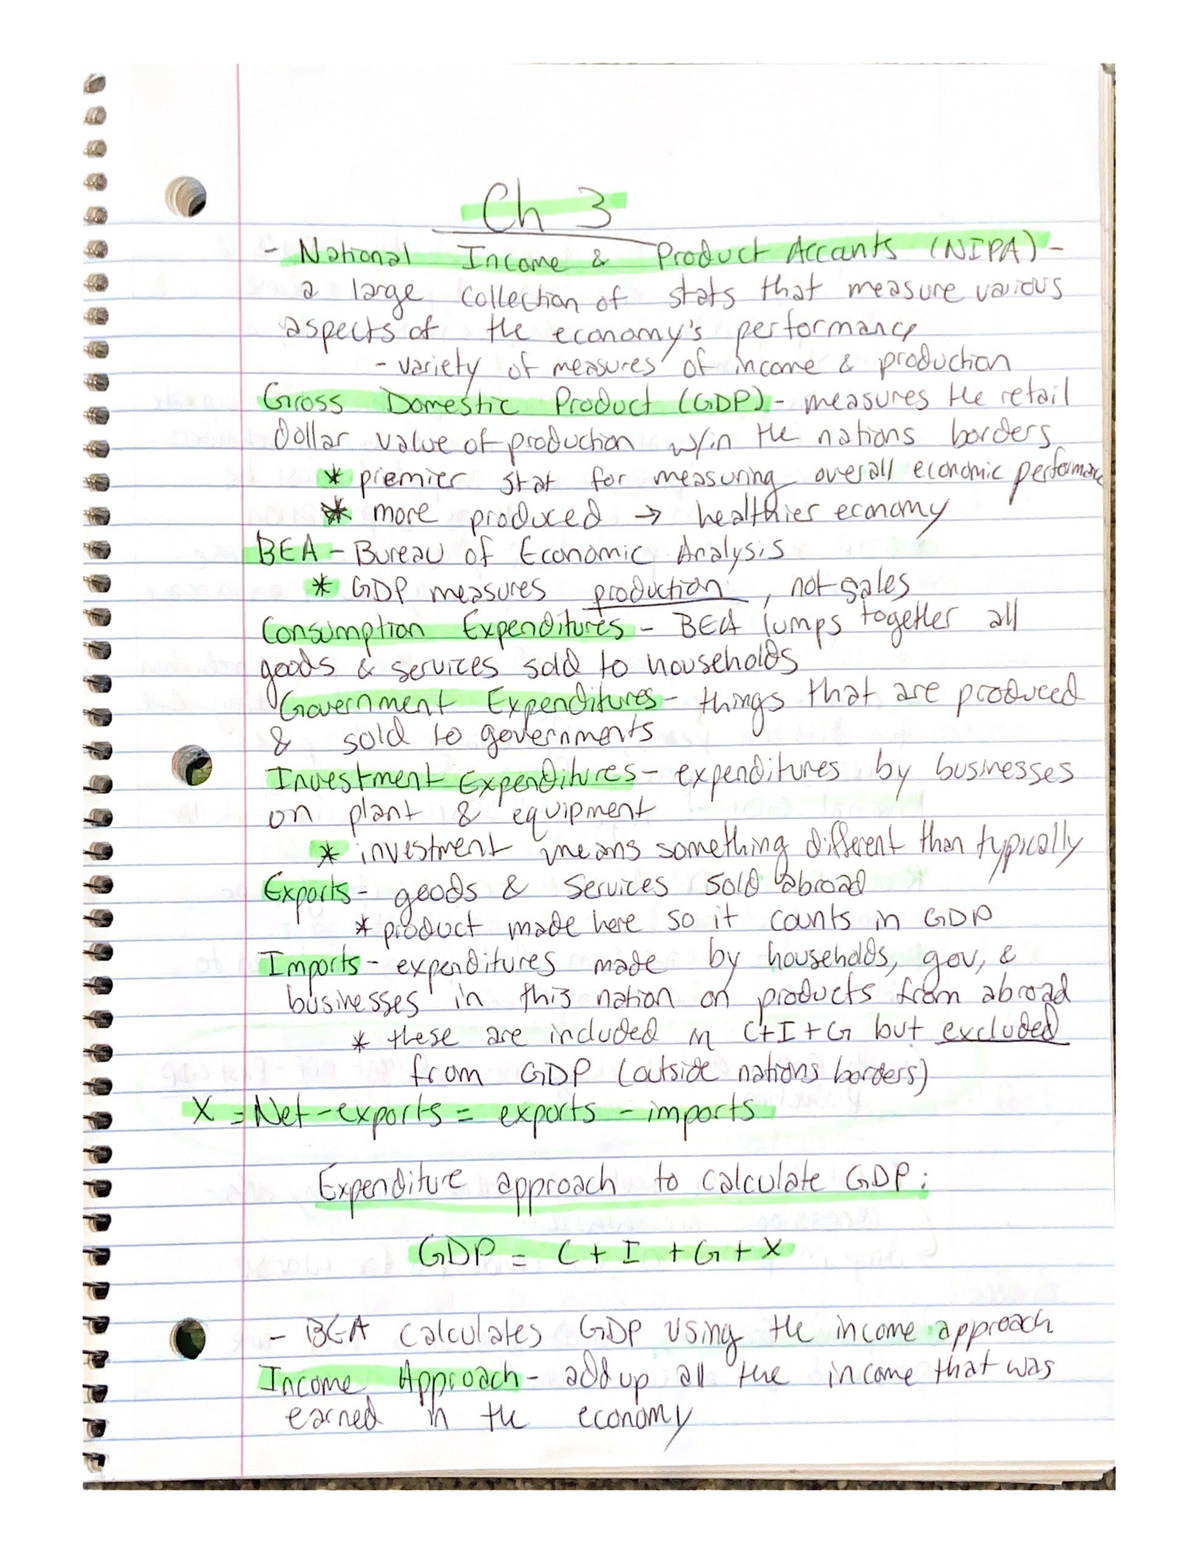 Ch 3
- National Income & Product Accants (NIPA) -
a large collection of stats that measure various
aspects of the economy's performance
- variety of measures of income & production
Gross Domestic Product (GDP) - measures the retail
dollar value of production w/in the nations borders
* premier stat for measuring overall economic performance
* more produced → healthier economy
BEA - Bureau of Economic Analysis
* GDP measures production, not sales
Consumption Expenditures - BEA lumps together all
goods & services sold to households
Government Expenditures - things that are produced
& sold to governments
Investment Expenditures - expenditures by businesses
on plant & equipment
* investment means something different than typically
Exports - goods & services sold abroad
* product made here so it counts in GDP
Imports - expenditures made by households, gov, &
businesses in this nation on products from abroad
* these are included in C+I+G but excluded
from GDP (outside nations borders)
X = Net-exports = exports - imports
Expenditure approach to calculate GDP:
GDP = C + I + G + X
- BEA calculates GDP using the income approach
Income Approach - add up all the income that was
earned in the economy